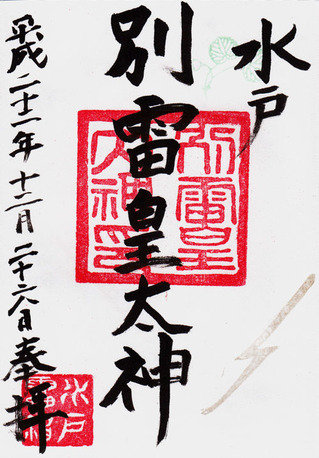 水戸
別雷皇太神
平成二十二年十二月二十六日奉拝
別雷皇
太神印
水戸